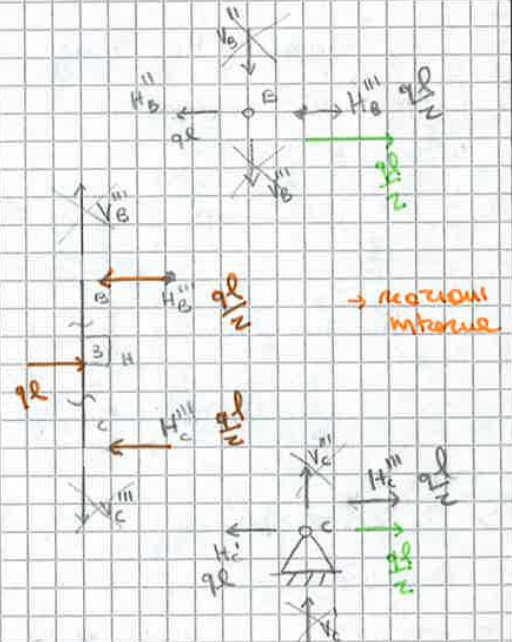 V_B''
H_B''
B
H_B''' ql/2
ql
V_B'''
ql/2
V_B'''
B
H_B''' ql/2
→ reazioni
interne
3 H
ql
C
H_C''' ql/2
V_C'''
V_C'''
H_C''' ql/2
H_C'
C
ql
ql/2
V_C'